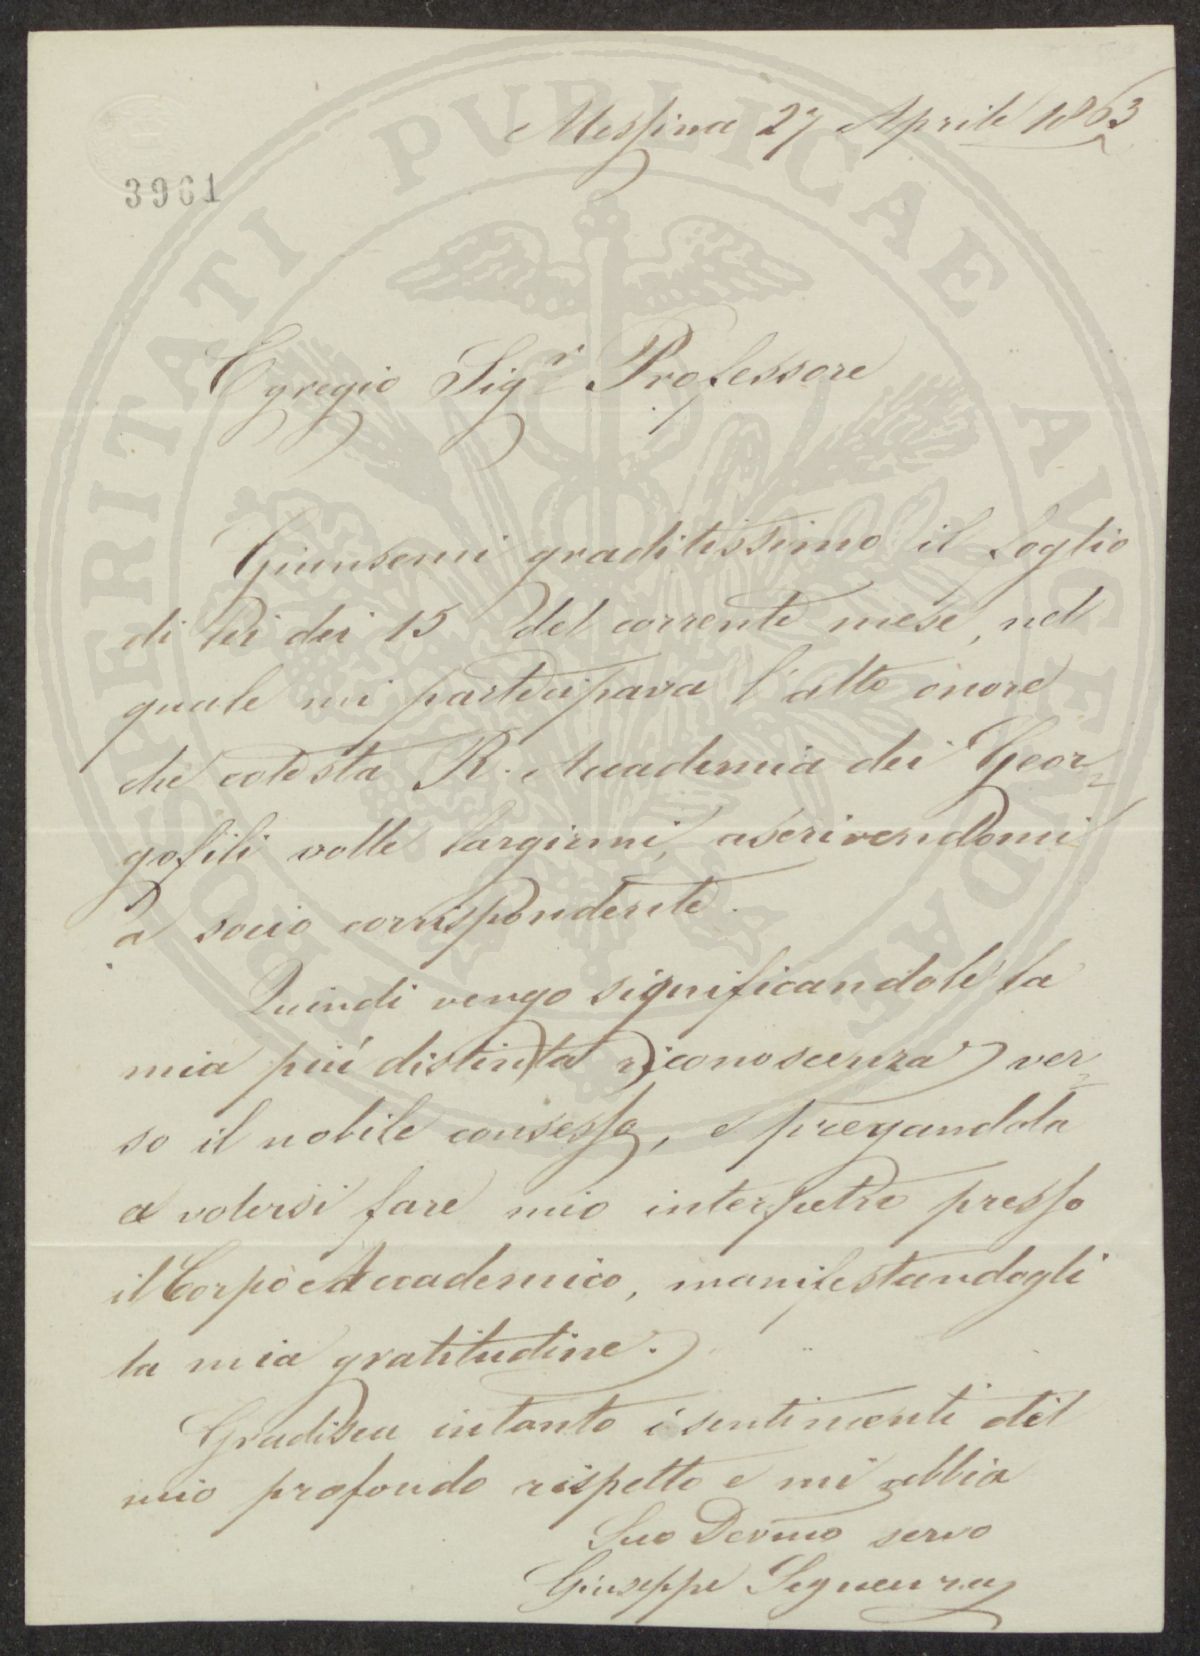 Messina 27 Aprile 1863
3961
Egregio Sigr Professore
Giunsemi graditissimo il foglio
di Lei dei 15 del corrente mese, nel
quale mi partecipava l'alto onore
che cotesta R. Accademia dei Geor=
gofili volle largirmi, ascrivendomi
a socio corrispondente.
Quindi vengo significandole la
mia più distinta riconoscenza ver=
so il nobile consesso, e pregandola
a volersi fare mio interpetre presso
il Corpo Accademico, manifestandogli
la mia gratitudine.
Gradisca intanto i sentimenti del
mio profondo rispetto e mi abbia
Suo Devmo servo
Giuseppe Seguenza
PROSPERITATI PVBLICAE AVGENDAE